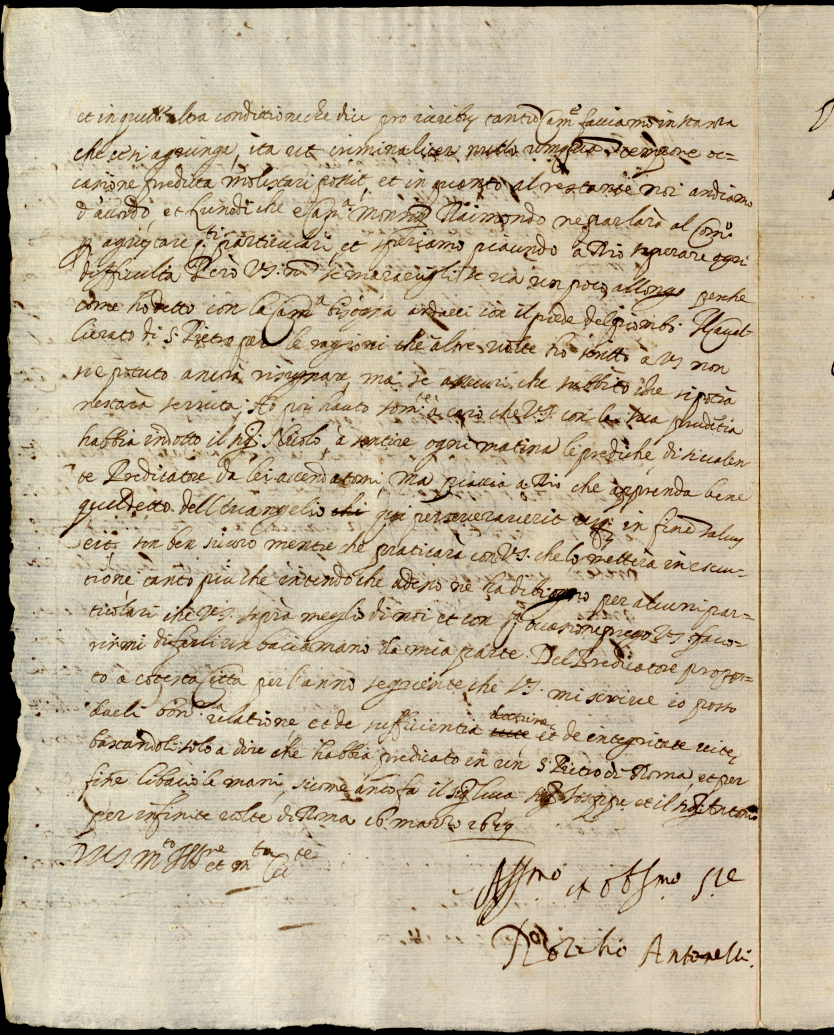 et in quell'altra conditione che dice pro viribus tantum Came facciamo instanza
che ci si aggiunga, ita ut criminaliter nullo umquam tempore oc-
casione predicta molestari possit, et in quanto al restante noi andiamo
d'acordo, et lunedi che e Raimondo ne parlarà al
p aquetare particulari, et speriamo piacendo a Dio superare ogni
difficultà Però VS. non se maravigli se va un poco allongo perche
come ho detto con la bisogna andarci con il piede del piombo. Il caval-
lierato di S. Pietro per le ragioni che altre volte ho scritto a VS non
s'è potuto ancora risignare, ma se assicuri che subbito che si potrà
restarà servita; Ho poi hauto a caro che VS. con la sua prudētia
habbia indotto il sigr. Nicolo, a sentire ogni matina le prediche di si valen-
te Predicatore da lei accennatomi, ma piaccia a Dio che apprenda bene
quel detto dell'Evangelio chi qui perseveraverit usq in finē salvus
erit, son ben sicuro mentre che praticarà con VS. che lo metterà in esecu-
tione tanto più che intendo che adesso ne ha di bisogno per alcuni par-
ticolari che VS. saprà meglio di noi et con occasione prego VS favo-
rirmi di farli un baciamano da mia parte. Del Predicatore propos-
to a cotesta Città per l'anno seguente che VS. mi scrive io posso
darli bona relatione, et de sufficientia doctrinæ et de integritate vitæ,
bastandoli solo a dire che habbia predicato in un S. Pietro di Roma, et per
fine li bacio le mani, sicome anco fa il sigr Luca sigr Gioseppe et il sigr Antonio
per infinite volte, di Roma 16. marzo 1619
Di VS mto Illre et mto
Affmo et obsmo
Horatio Antonelli.